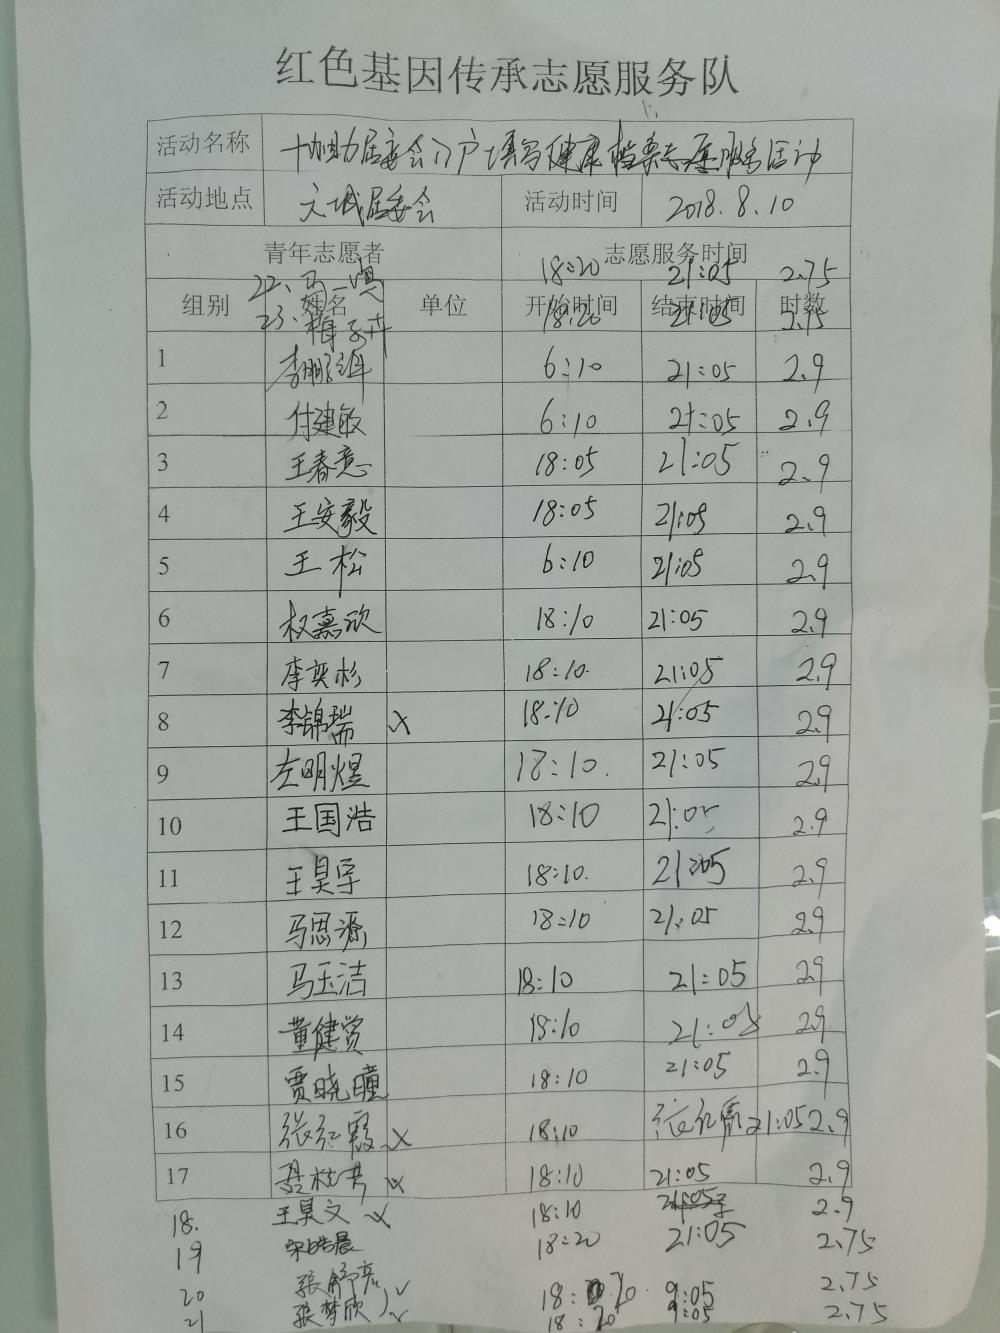 红色基因传承志愿服务队
活动名称 居委会入户填写健康档案志愿服务活动
活动地点 文城居委会 活动时间 2018.8.10
青年志愿者 志愿服务时间
22、马 18:20 21:05 2.75
组别 姓名 单位 开始时间 结束时间 时数
23、梅子卉 18:20 21:05 2.75
1 李鹏 6:10 21:05 2.9
2 付建敏 6:10 21:05 2.9
3 王春意 18:05 21:05 2.9
4 王安毅 18:05 21:05 2.9
5 王松 6:10 21:05 2.9
6 权嘉欣 18:10 21:05 2.9
7 李奕杉 18:10. 21:05 2.9
8 李锦瑞 x 18:10 21:05 2.9
9 左明煜 18:10. 21:05 2.9
10 王国浩 18:10 21:05 2.9
11 王昊宇 18:10. 21:05 2.9
12 马思源 18:10 21:05 2.9
13 马玉洁 18:10 21:05 2.9
14 董健 18:10 21:05 2.9
15 贾晓瞳 18:10 21:05 2.9
16 张红霞 x 18:10 张红霞 21:05 2.9
17 聂 x 18:10 21:05 2.9
18. 王昊文 x 18:10 21:05 2.9
19 宋皓晨 18:20 21:05 2.75
20 张舒亮 ✓ 9:05 2.75
21 张梦欣 ✓ 9:05 2.75